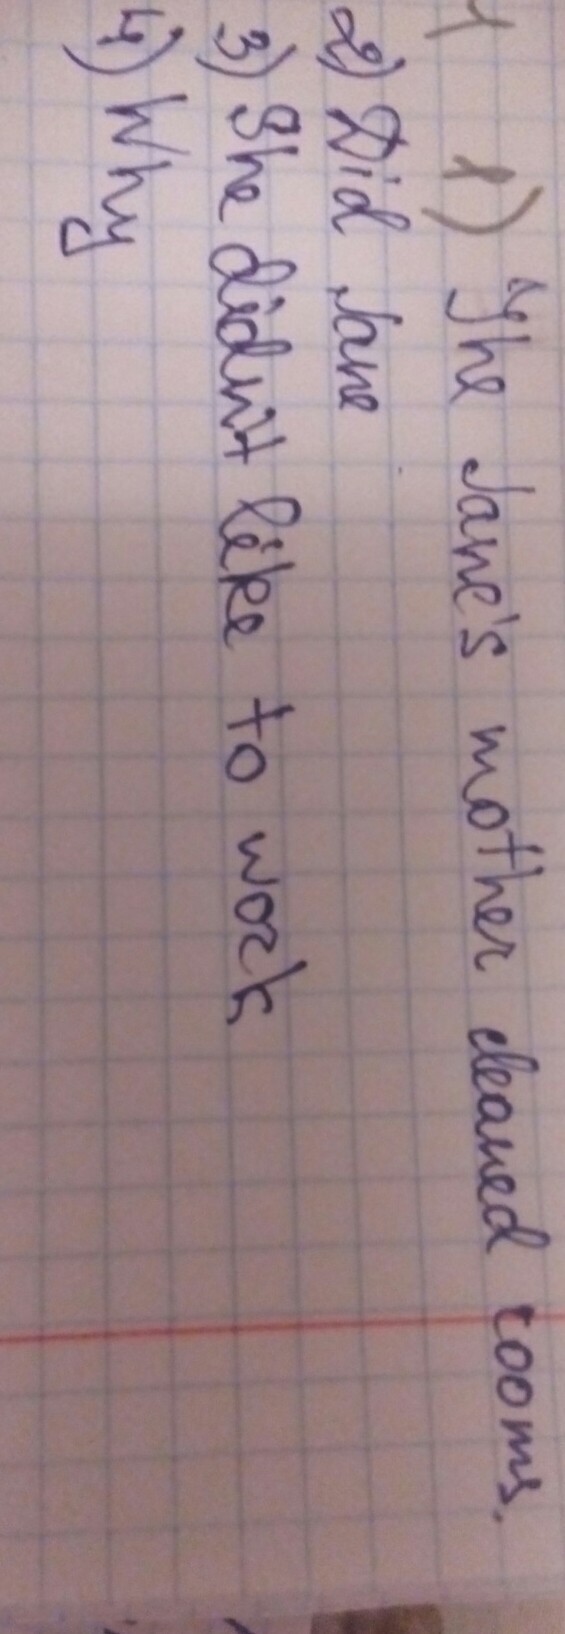 1 1) The Jane's mother cleaned rooms.
2) Did Jane
3) She didn't like to work
4) Why